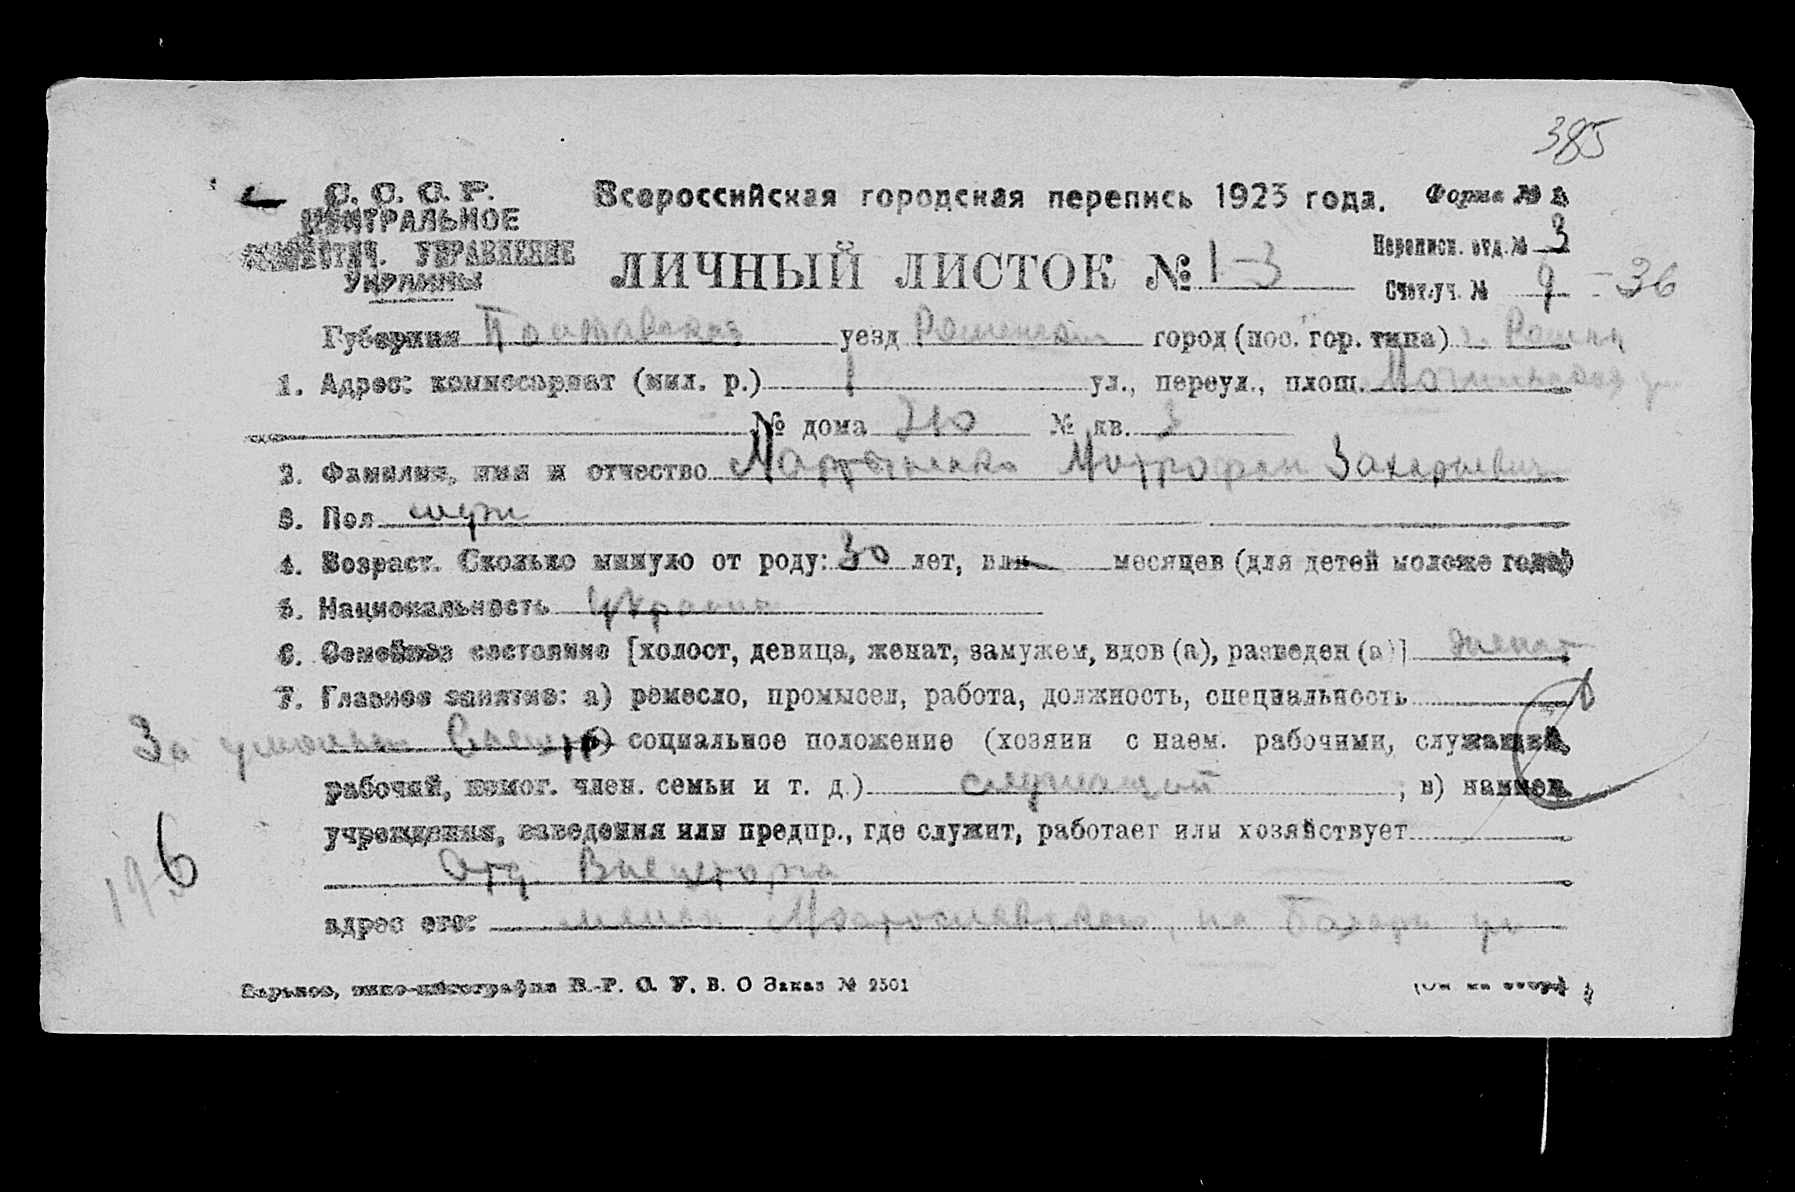 385
С. С. С. Р. Всероссийская городская перепись 1923 года. Форма № 2
ЦЕНТРАЛЬНОЕ
СТАТИСТИЧ. УПРАВЛЕНИЕ
УКРАИНЫ
ЛИЧНЫЙ ЛИСТОК № 1-3
Переписн. отд. № 3
Счетн. уч. № 9 - 36
Губерния Полтавская уезд Роменский город (пос. гор. типа) г. Ромны
1. Адрес: комиссариат (мил. р.) 1 ул., переул., площ.
№ дома № кв. 3
2. Фамилия, имя и отчество Мартыненко Митрофан Захарьевич
3. Пол муж
4. Возраст. Сколько минуло от роду: 30 лет, или месяцев (для детей моложе года)
5. Национальность украин
6. Семейное состояние [холост, девица, женат, замужем, вдов (а), разведен (а)] женат
7. Главное занятие: а) ремесло, промысел, работа, должность, специальность
За б) социальное положение (хозяин с наем. рабочими, служащий,
рабочий, помог. член. семьи и т. д.) служащий ; в) наимен.
учреждения, заведения или предпр., где служит, работает или хозяйствует
196
Отд.
адрес его:
Харьков, типо-литография В.-Р. С. У. В. О Заказ № 2501
(См. на обор.)